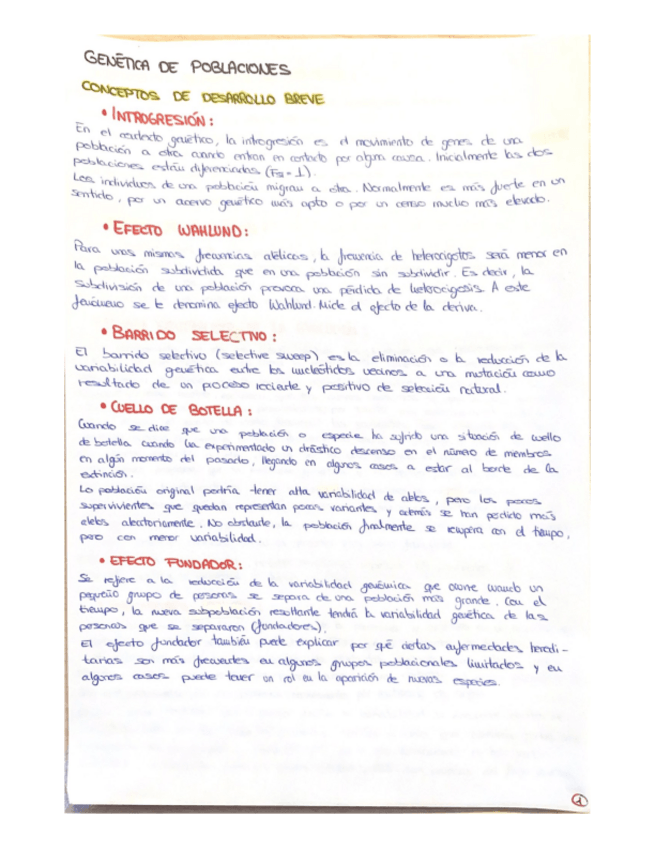 GENÉTICA DE POBLACIONES
CONCEPTOS DE DESARROLLO BREVE
• INTROGRESIÓN:
En el contexto genético, la introgresión es el movimiento de genes de una
población a otra cuando entran en contacto por alguna causa. Inicialmente las dos
poblaciones están diferenciadas (FST = 1).
Los individuos de una población migran a otra. Normalmente es más fuerte en un
sentido, por un acervo genético más apto o por un censo mucho más elevado.
• EFECTO WAHLUND:
Para unas mismas frecuencias alélicas, la frecuencia de heterocigotos será menor en
la población subdividida que en una población sin subdividir. Es decir, la
subdivisión de una población provoca una pérdida de heterocigosis. A este
fenómeno se le denomina efecto Wahlund. Mide el efecto de la deriva.
• BARRIDO SELECTIVO:
El barrido selectivo (selective sweep) es la eliminación o la reducción de la
variabilidad genética entre los nucleótidos vecinos a una mutación como
resultado de un proceso reciente y positivo de selección natural.
• CUELLO DE BOTELLA:
Cuando se dice que una población o especie ha sufrido una situación de cuello
de botella cuando ha experimentado un drástico descenso en el número de miembros
en algún momento del pasado, llegando en algunos casos a estar al borde de la
extinción.
La población original podría tener alta variabilidad de alelos, pero los pocos
supervivientes que quedan representan pocas variantes y además se han perdido más
alelos aleatoriamente. No obstante, la población finalmente se recupera con el tiempo,
pero con menor variabilidad.
• EFECTO FUNDADOR:
Se refiere a la reducción de la variabilidad genómica que ocurre cuando un
pequeño grupo de personas se separa de una población más grande. Con el
tiempo, la nueva subpoblación resultante tendrá la variabilidad genética de las
personas que se separaron (fundadores).
El efecto fundador también puede explicar por qé ciertas enfermedades heredi-
tarias son más frecuentes en algunos grupos poblacionales limitados y en
algunos casos puede tener un rol en la aparición de nuevas especies.
1